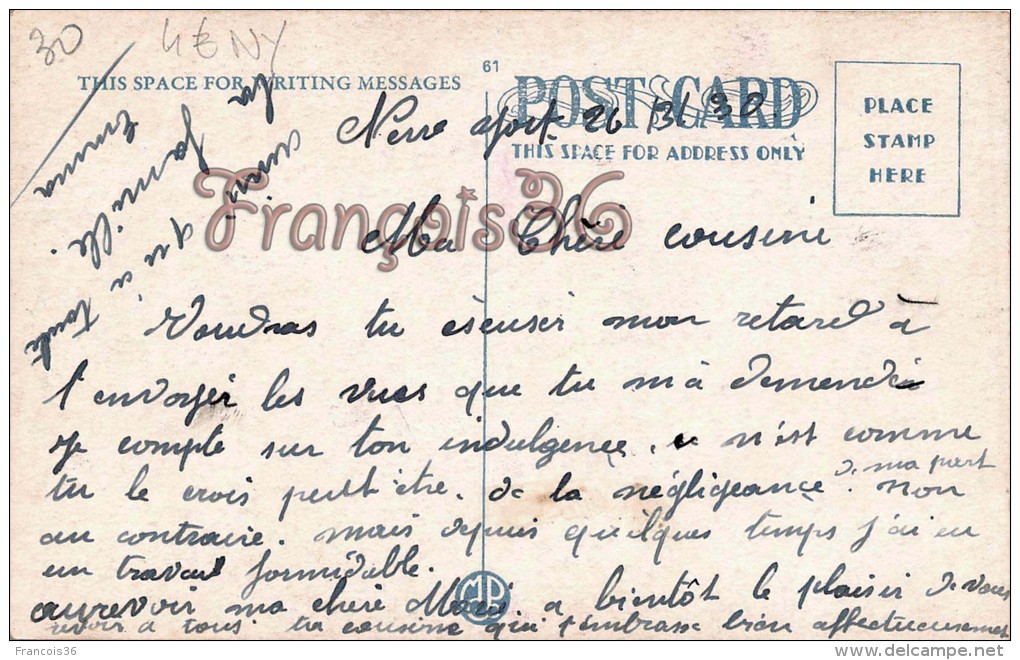 30
4 € NY
THIS SPACE FOR WRITING MESSAGES
61
POST CARD
THIS SPACE FOR ADDRESS ONLY
PLACE
STAMP
HERE
26 30
François36
Ma Chère cousine
Voudras tu éscuser mon retard à
t'envoyer les vues que tu m'a demendé
je compte sur ton indulgence, n'est comme
tu le crois peut être. de la négligeance. de ma part non
au contraire. mais depuis quelques temps j'ai eu
un travail formidable.
aurevoir ma chère a bientôt le plaisir de vous
revoir a tous. ta cousine qui t'embrasse bien affectueusement
ainsi qu'a toute
la famille.
Emma
MD
Francois36